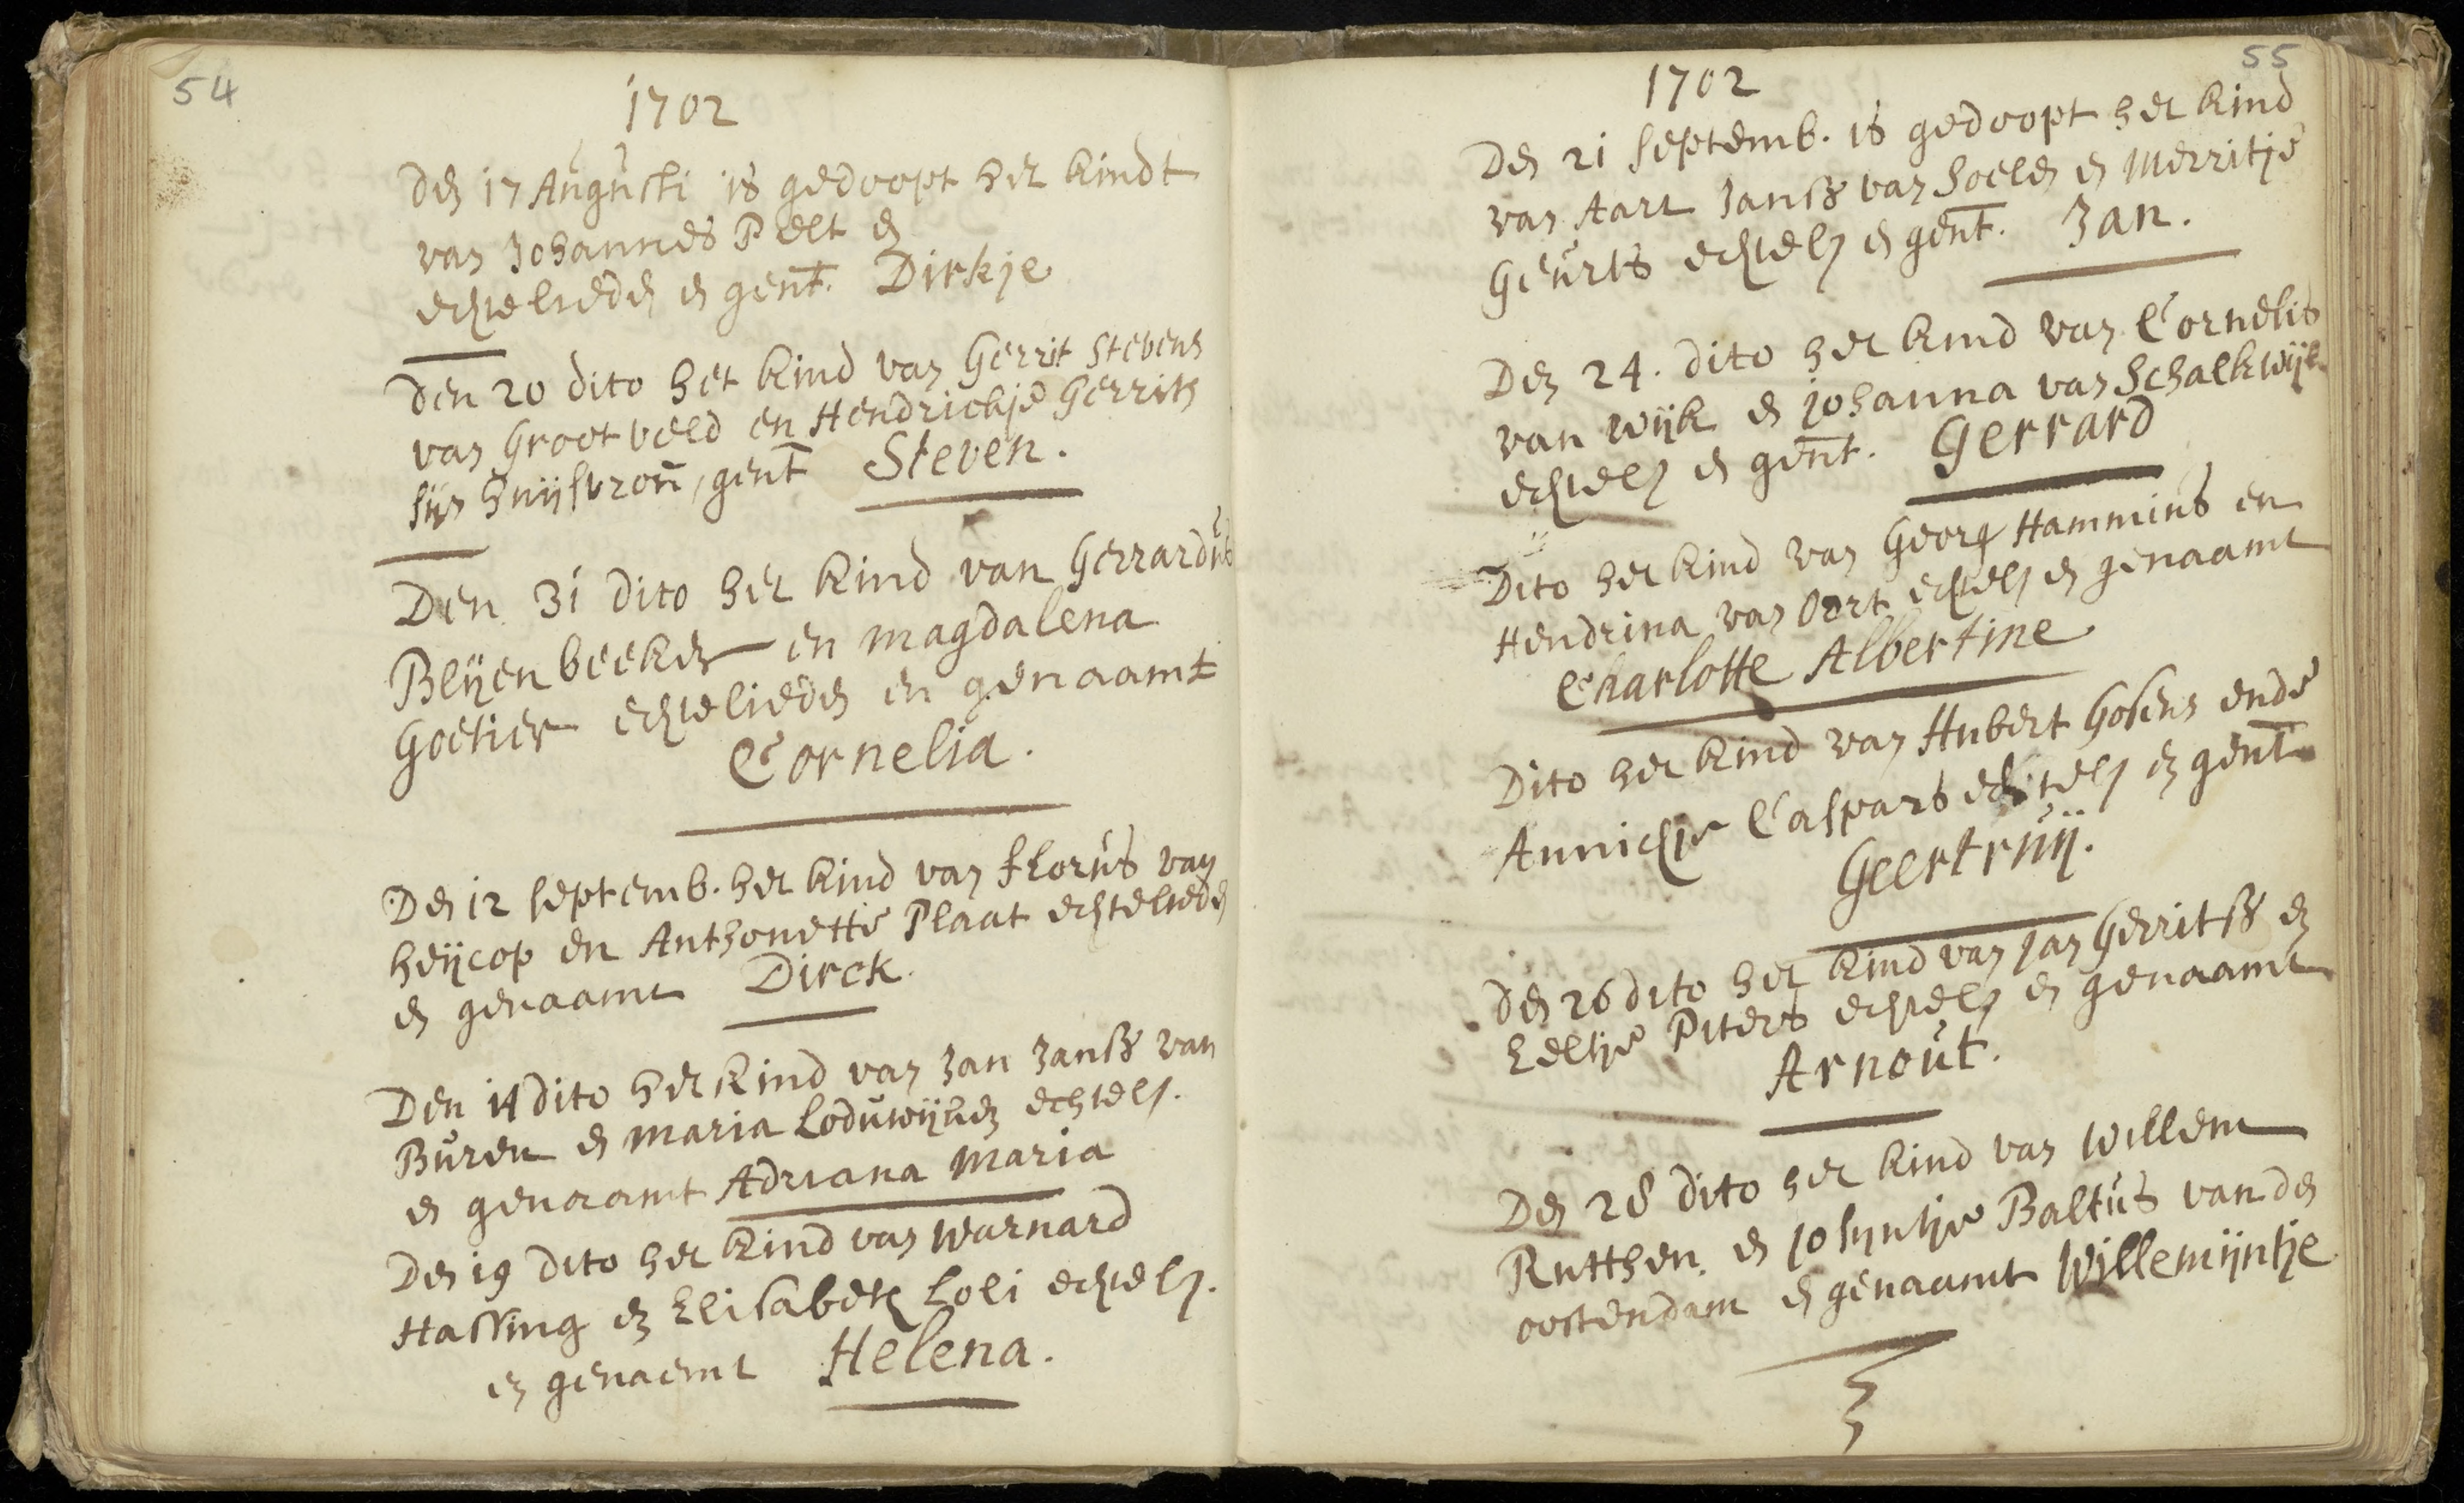 54
1702
Den 17 Augusti is gedoopt het kindt
van Johannes Pelt en
echtelieden en gent. Dirkje
Den 20 dito het kind van Gerrit Stevens
van Grootveld en Hendrickje Gerrits
sijn huijsvrou, gent Steven.
Den 31 dito het kind van Gerrardus
Blijenbeeker en Magdalena
Goetier echtelieden en genaamt
Cornelia.
Den 12 septemb. het kind van florus van
heijcop en Anthonette Plaat echtelieden
en genaamt Dirck.
Den 14 dito het kind van Jan Janss van
Buren en Maria Loduwijcks echtel.
en genaamt Adriana Maria
Den 19 dito het kind van Warnard
Hassing en Elisabeth Loli echtel.
en genaemt Helena.
55
1702
Den 21 septemb. is gedoopt het kind
van Aart Janss van Soelen en Merritje
Geurts echtel en gent. Jan.
Den 24. dito het kind van Cornelis
van Wijk en johanna van Schalkwijk
echtel en gent. Gerrard
Dito het kind van Georg Hammius en
Hendrina van Oort echtel en genaamt
Charlotte Albertine
Dito het kind van Hubert Gosens ende
Annichje Caspars echtel en gent
Geertruij.
Den 26 dito het kind van jan Gerritss en
Eeltje Piters echtel en genaamt
Arnout.
Den 28 dito het kind van Willem
Rutthen en josijntje Baltus van den
oostendam en genaamt Willemijntje